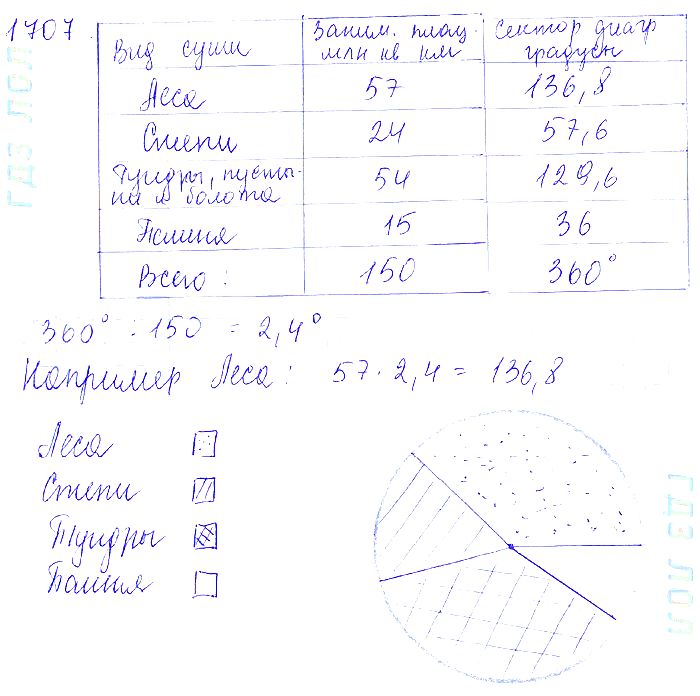 1707.
Вид суши
Заним. площ. млн кв км
Сектор диагр градусы
Леса 57 136,8
Степи 24 57,6
Тундры, пусты-
ни и болота 54 129,6
Пашня 15 36
Всего: 150 360°
360° : 150 = 2,4°
Например Леса: 57 · 2,4 = 136,8
Леса
Степи
Тундры
Пашня
ГДЗ ЛОЛ
ГДЗ ЛОЛ